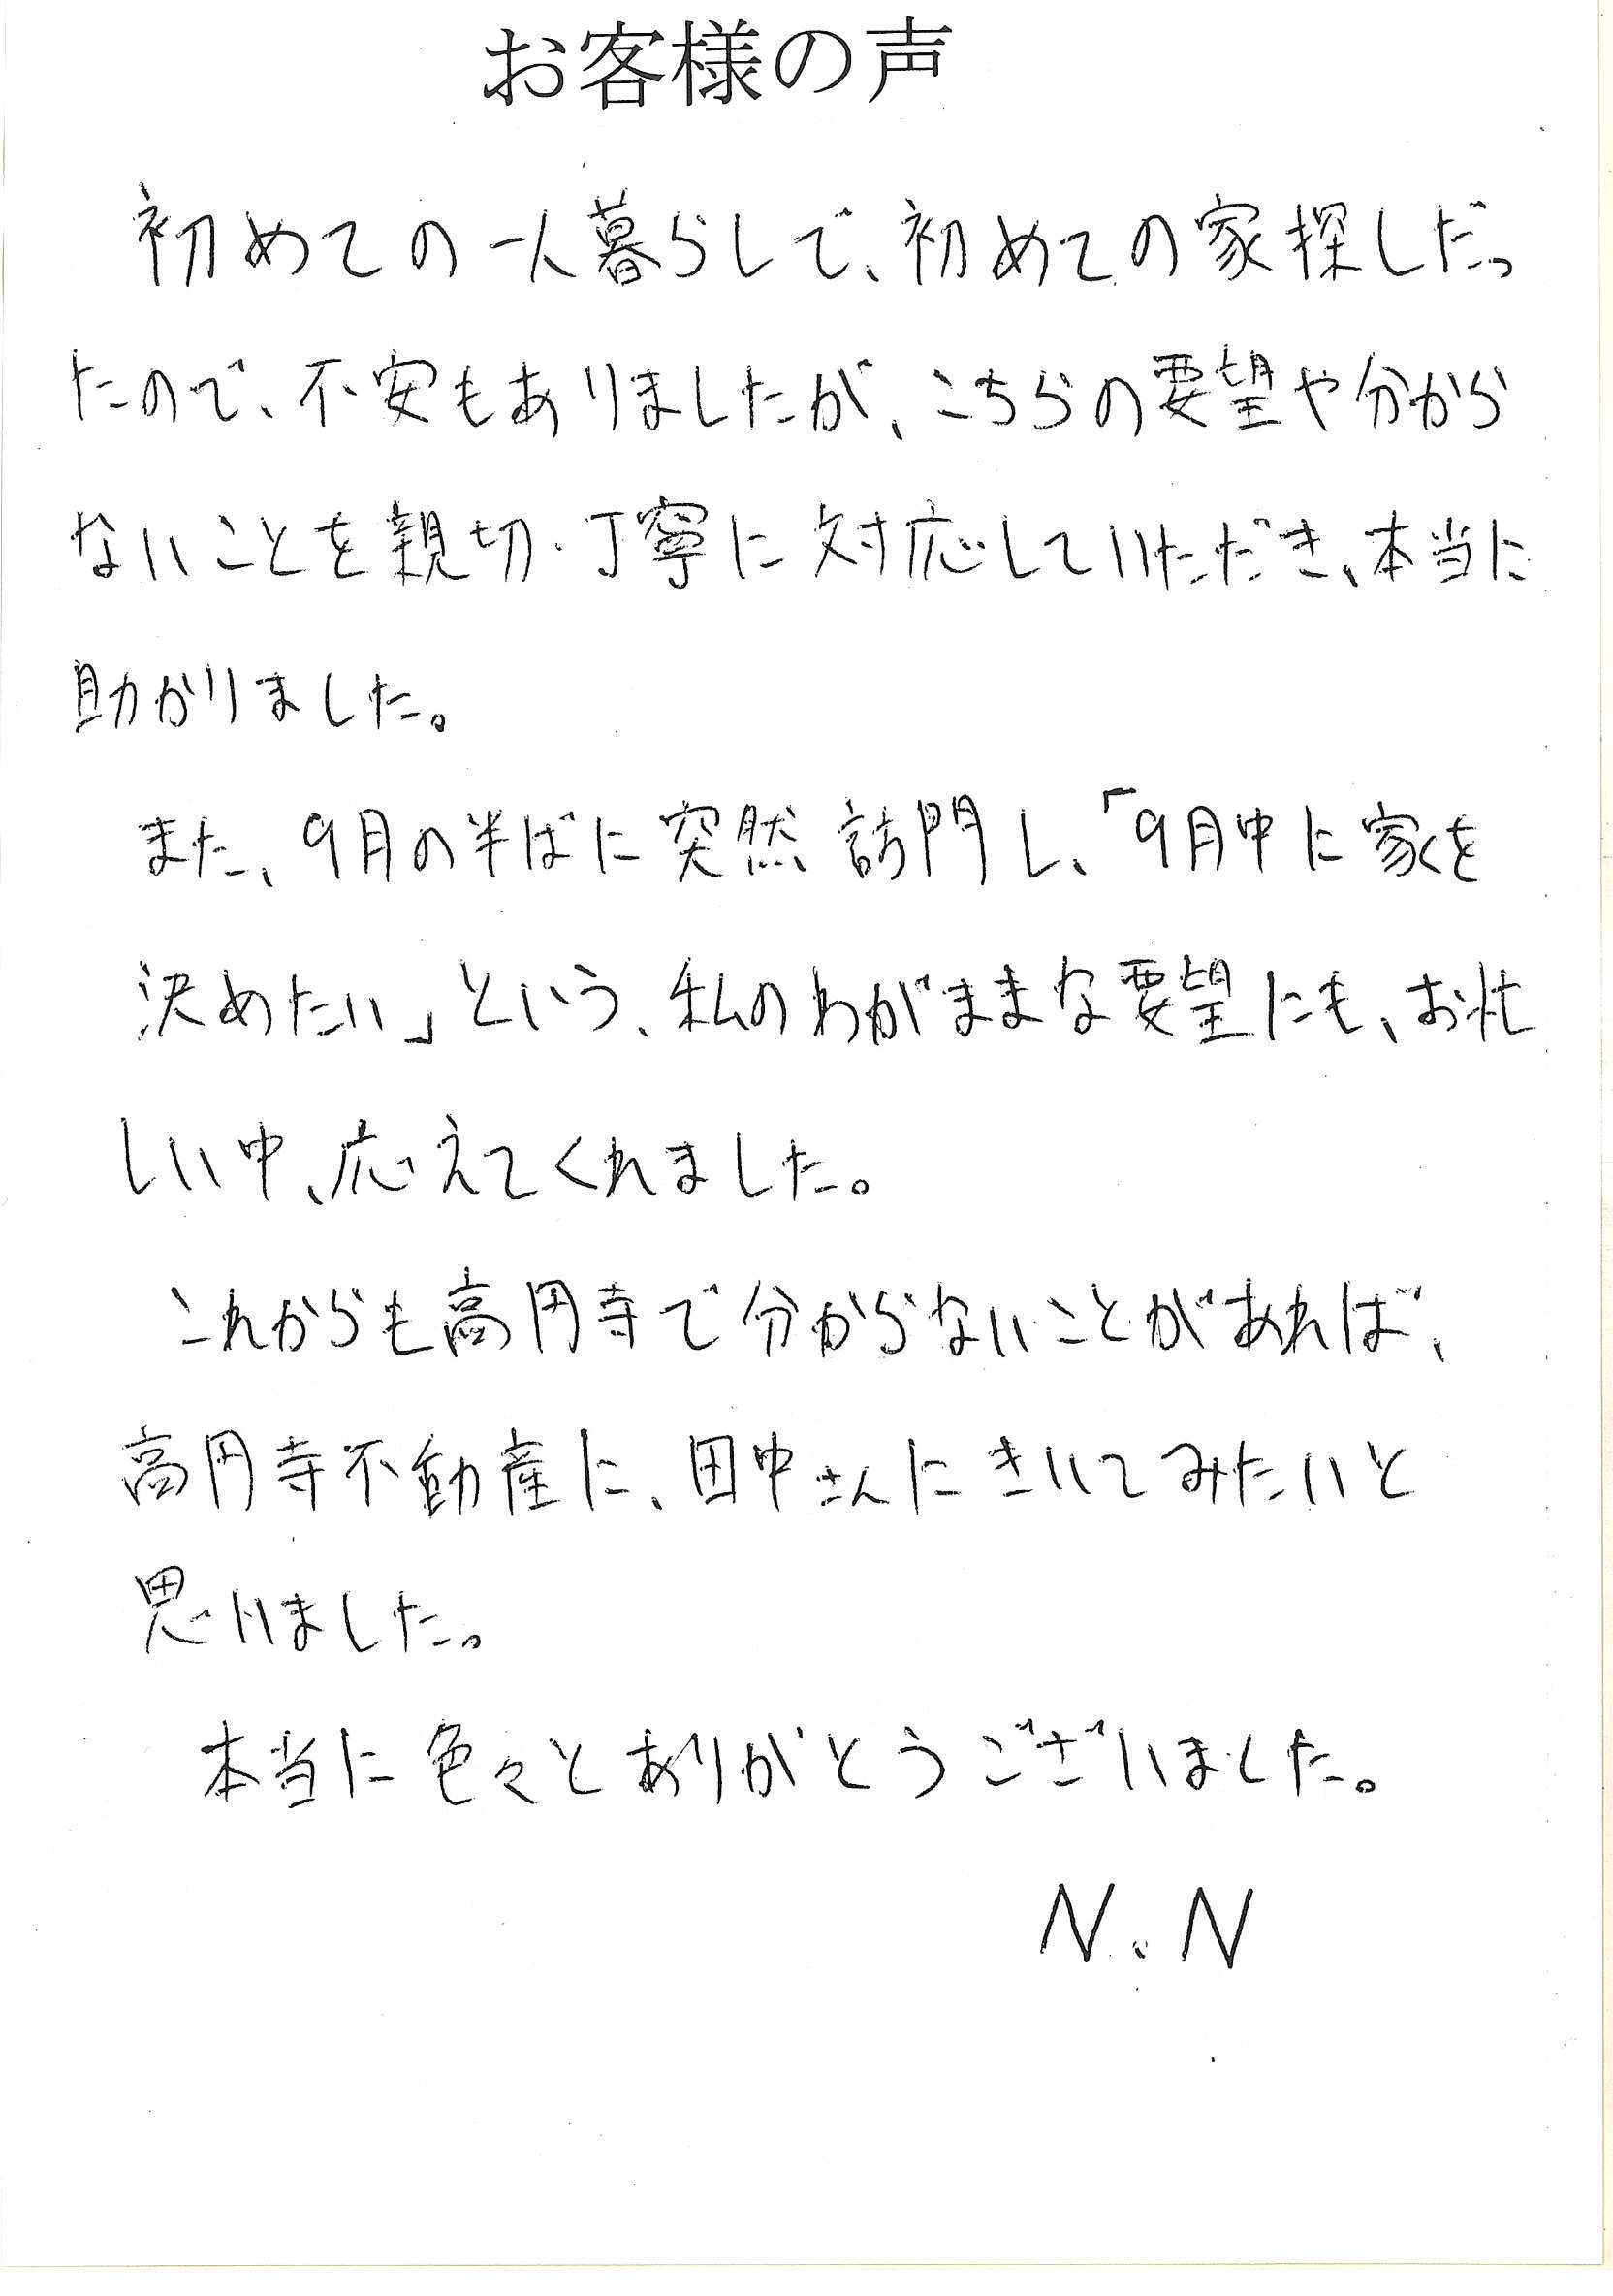 お客様の声
初めての一人暮らしで、初めての家探しだっ
たので、不安もありましたが、こちらの要望や分から
ないことを親切・丁寧に対応していただき、本当に
助かりました。
また、9月の半ばに突然訪問し、「9月中に家を
決めたい」という、私のわがままな要望にも、お忙
しい中、応えてくれました。
これからも高円寺で分からないことがあれば、
高円寺不動産に、田中さんにきいてみたいと
思いました。
本当に色々とありがとうございました。
N.N